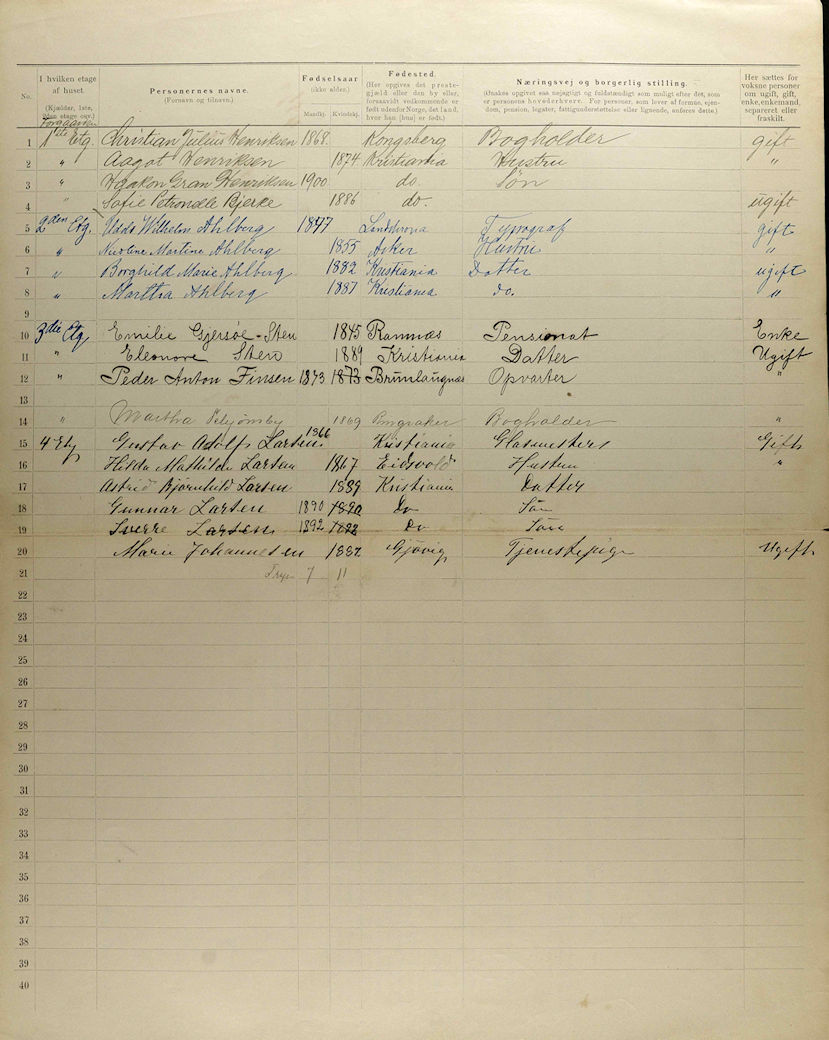 No.
I hvilken etage af huset
(Kjælder, 1ste, 2den etage osv.)
Personernes navne.
(Fornavn og tilnavn.)
Fødselsaar
(ikke alder).
Mandkj. Kvindekj.
Fødested.
(Her opgives det prestegjæld eller den by eller, forsaavidt vedkommende er født udenfor Norge, det land, hvor han (hun) er født.)
Næringsvej og borgerlig stilling.
(Ønskes opgivet saa nøjagtigt og fuldstændigt som muligt efter det, som er personens hovederhverv. For personer, som lever af formue, ejendom, pension, legater, fattigunderstøttelse eller lignende, anføres dette.)
Her sættes for voksne personer om ugift, gift, enke, enkemand, separeret eller fraskilt.
Forgaarden
1 1ste Etg. Christian Julius Henriksen 1868 Kongsberg Bogholder gift
2 " Aagot Henriksen 1874 Kristiania Hustru "
3 " Haakon Gran Henriksen 1900 do. Søn
4 " Sofie Petronelle Bjerke 1886 do. ugift
5 2den Etg. Wilhelm Ahlberg 1847 Landskrona Typograf gift
6 " Nicoline Martine Ahlberg 1855 Asker Hustru "
7 " Borghild Marie Ahlberg 1882 Kristiania Datter ugift
8 " Martha Ahlberg 1887 Kristiania do. "
9
10 3die Etg Emilie Gjersøe-Sten 1845 Ramnæs Pensionat Enke
11 " Eleonore Sten 1889 Kristiania Datter Ugift
12 " Peder Anton Finsen 1873 1873 Brunlaugnæs Opvarter "
13
14 " Martha 1869 Bogholder "
15 4 Etg Gustav Adolf Larsen 1866 Kristiania Glasmester Gift
16 Hilda Mathilde Larsen 1867 Eidsvold Hustru "
17 Astrid Bjørnhild Larsen 1889 Kristiania Datter
18 Gunnar Larsen 1890 1890 Do Søn
19 Sverre Larsen 1892 Do Søn
20 Marie Johannesen 1882 Gjøvig Tjenestepige Ugift
21 7 11
22
23
24
25
26
27
28
29
30
31
32
33
34
35
36
37
38
39
40